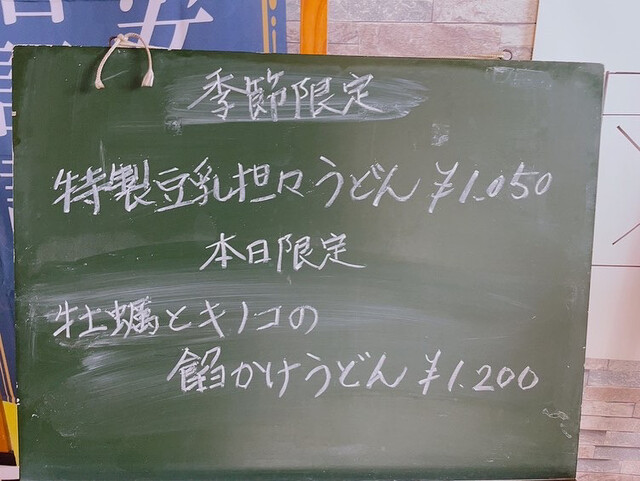 季節限定
特製豆乳担々うどん ¥1.050
本日限定
牡蠣とキノコの
餡かけうどん ¥1.200